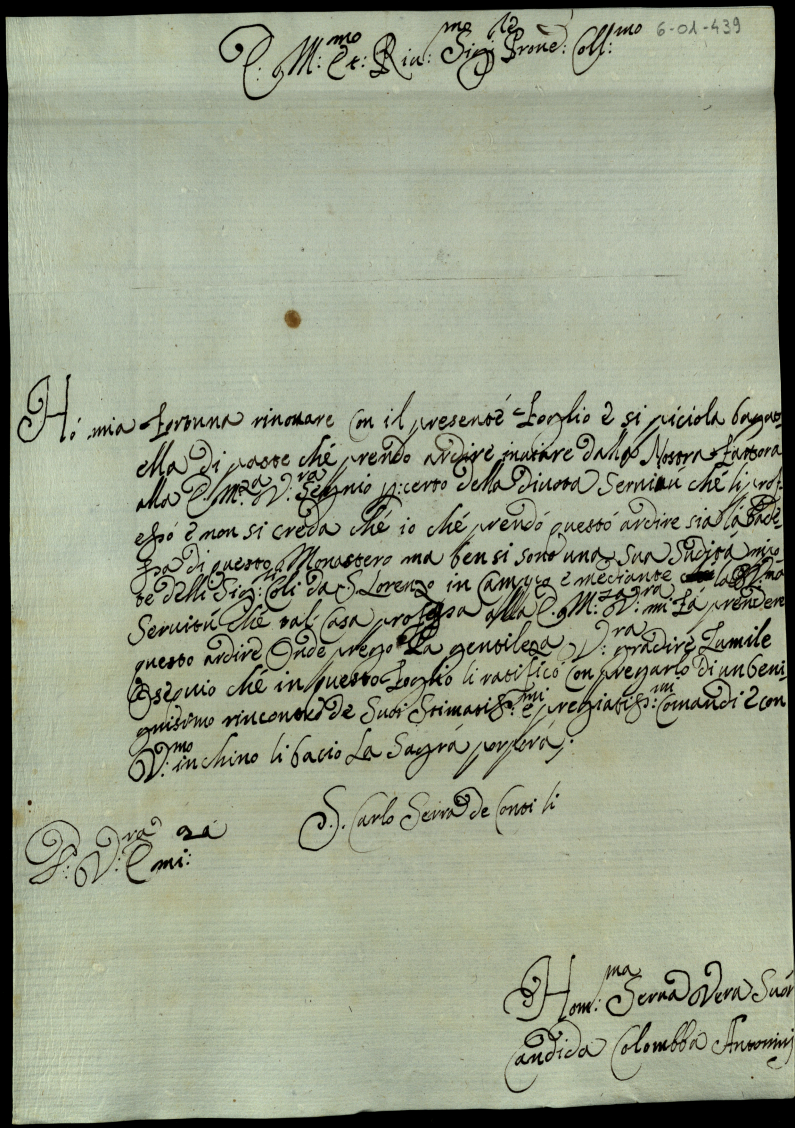 6-01-439
E: M:mo Et: Riu:mo Sig:re Prone: Coll:mo
Hó mia Fortuna rinouare Con il presenté Foglio é si piciola bagat
ella di paste ché prendo ardire inuiare dallo Nostra Fattora
alla E: M:za V:ra Segnio p: certo della Diuota Seruitú ché li prof
essó é non si creda ché io ché prendó questó ardire sia la Bade
ssa di questo Monastero ma ben si sonó una Sua Sudita mino
re delli Sig:ri Coli da S: Lorenzo in Campo é mediante la
Seruitú ché tal Casa professa alla E: M:za V:ra mi fá prendere
questo ardire Onde prego La gentileza V:ra gradire Lumile
Osequio ché in questo Foglio li ratificó Con pregarlo di un beni
gnisimo rincontro de Suoi Stimatiss:mi é pregiatiss:mi Comandi é Con
V:mo inchino li bacio La Sagrá porporá;
S. Carlo Serra de Conti li
D: V:ra Emi:za
Hom:ma Serua Vera Suór
Candida Colombbá Antoninj